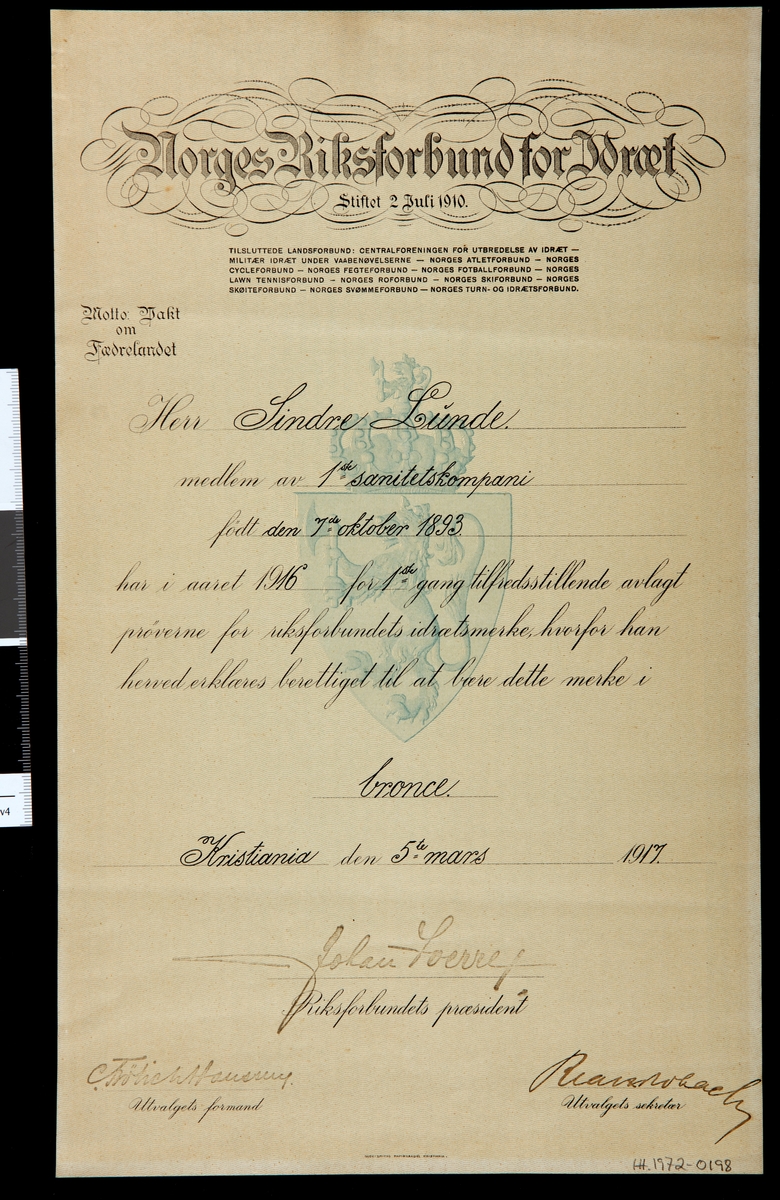 Norges Riksforbund for Idræt
Stiftet 2 Juli 1910.
TILSLUTTEDE LANDSFORBUND: CENTRALFORENINGEN FOR UTBREDELSE AV IDRÆT —
MILITÆR IDRÆT UNDER VAABENØVELSERNE — NORGES ATLETFORBUND — NORGES
CYCLEFORBUND — NORGES FEGTEFORBUND — NORGES FOTBALLFORBUND — NORGES
LAWN TENNISFORBUND — NORGES ROFORBUND — NORGES SKIFORBUND — NORGES
SKØITEFORBUND — NORGES SVØMMEFORBUND — NORGES TURN- OG IDRÆTSFORBUND.
Motto: Vakt
om
Fædrelandet
Herr Sindre Lunde.
medlem av 1ste sanitetskompani
født den 7de oktober 1893.
har i aaret 1916 for 1ste gang tilfredsstillende avlagt
prøverne for riksforbundets idrætsmerke, hvorfor han
herved erklæres berettiget til at bære dette merke i
bronce.
Kristiania den 5te mars 1917.
Johan Sverre
Riksforbundets præsident
C. Frölich Hanssen
Utvalgets formand
Utvalgets sekretær
HH.1972-0198
v4